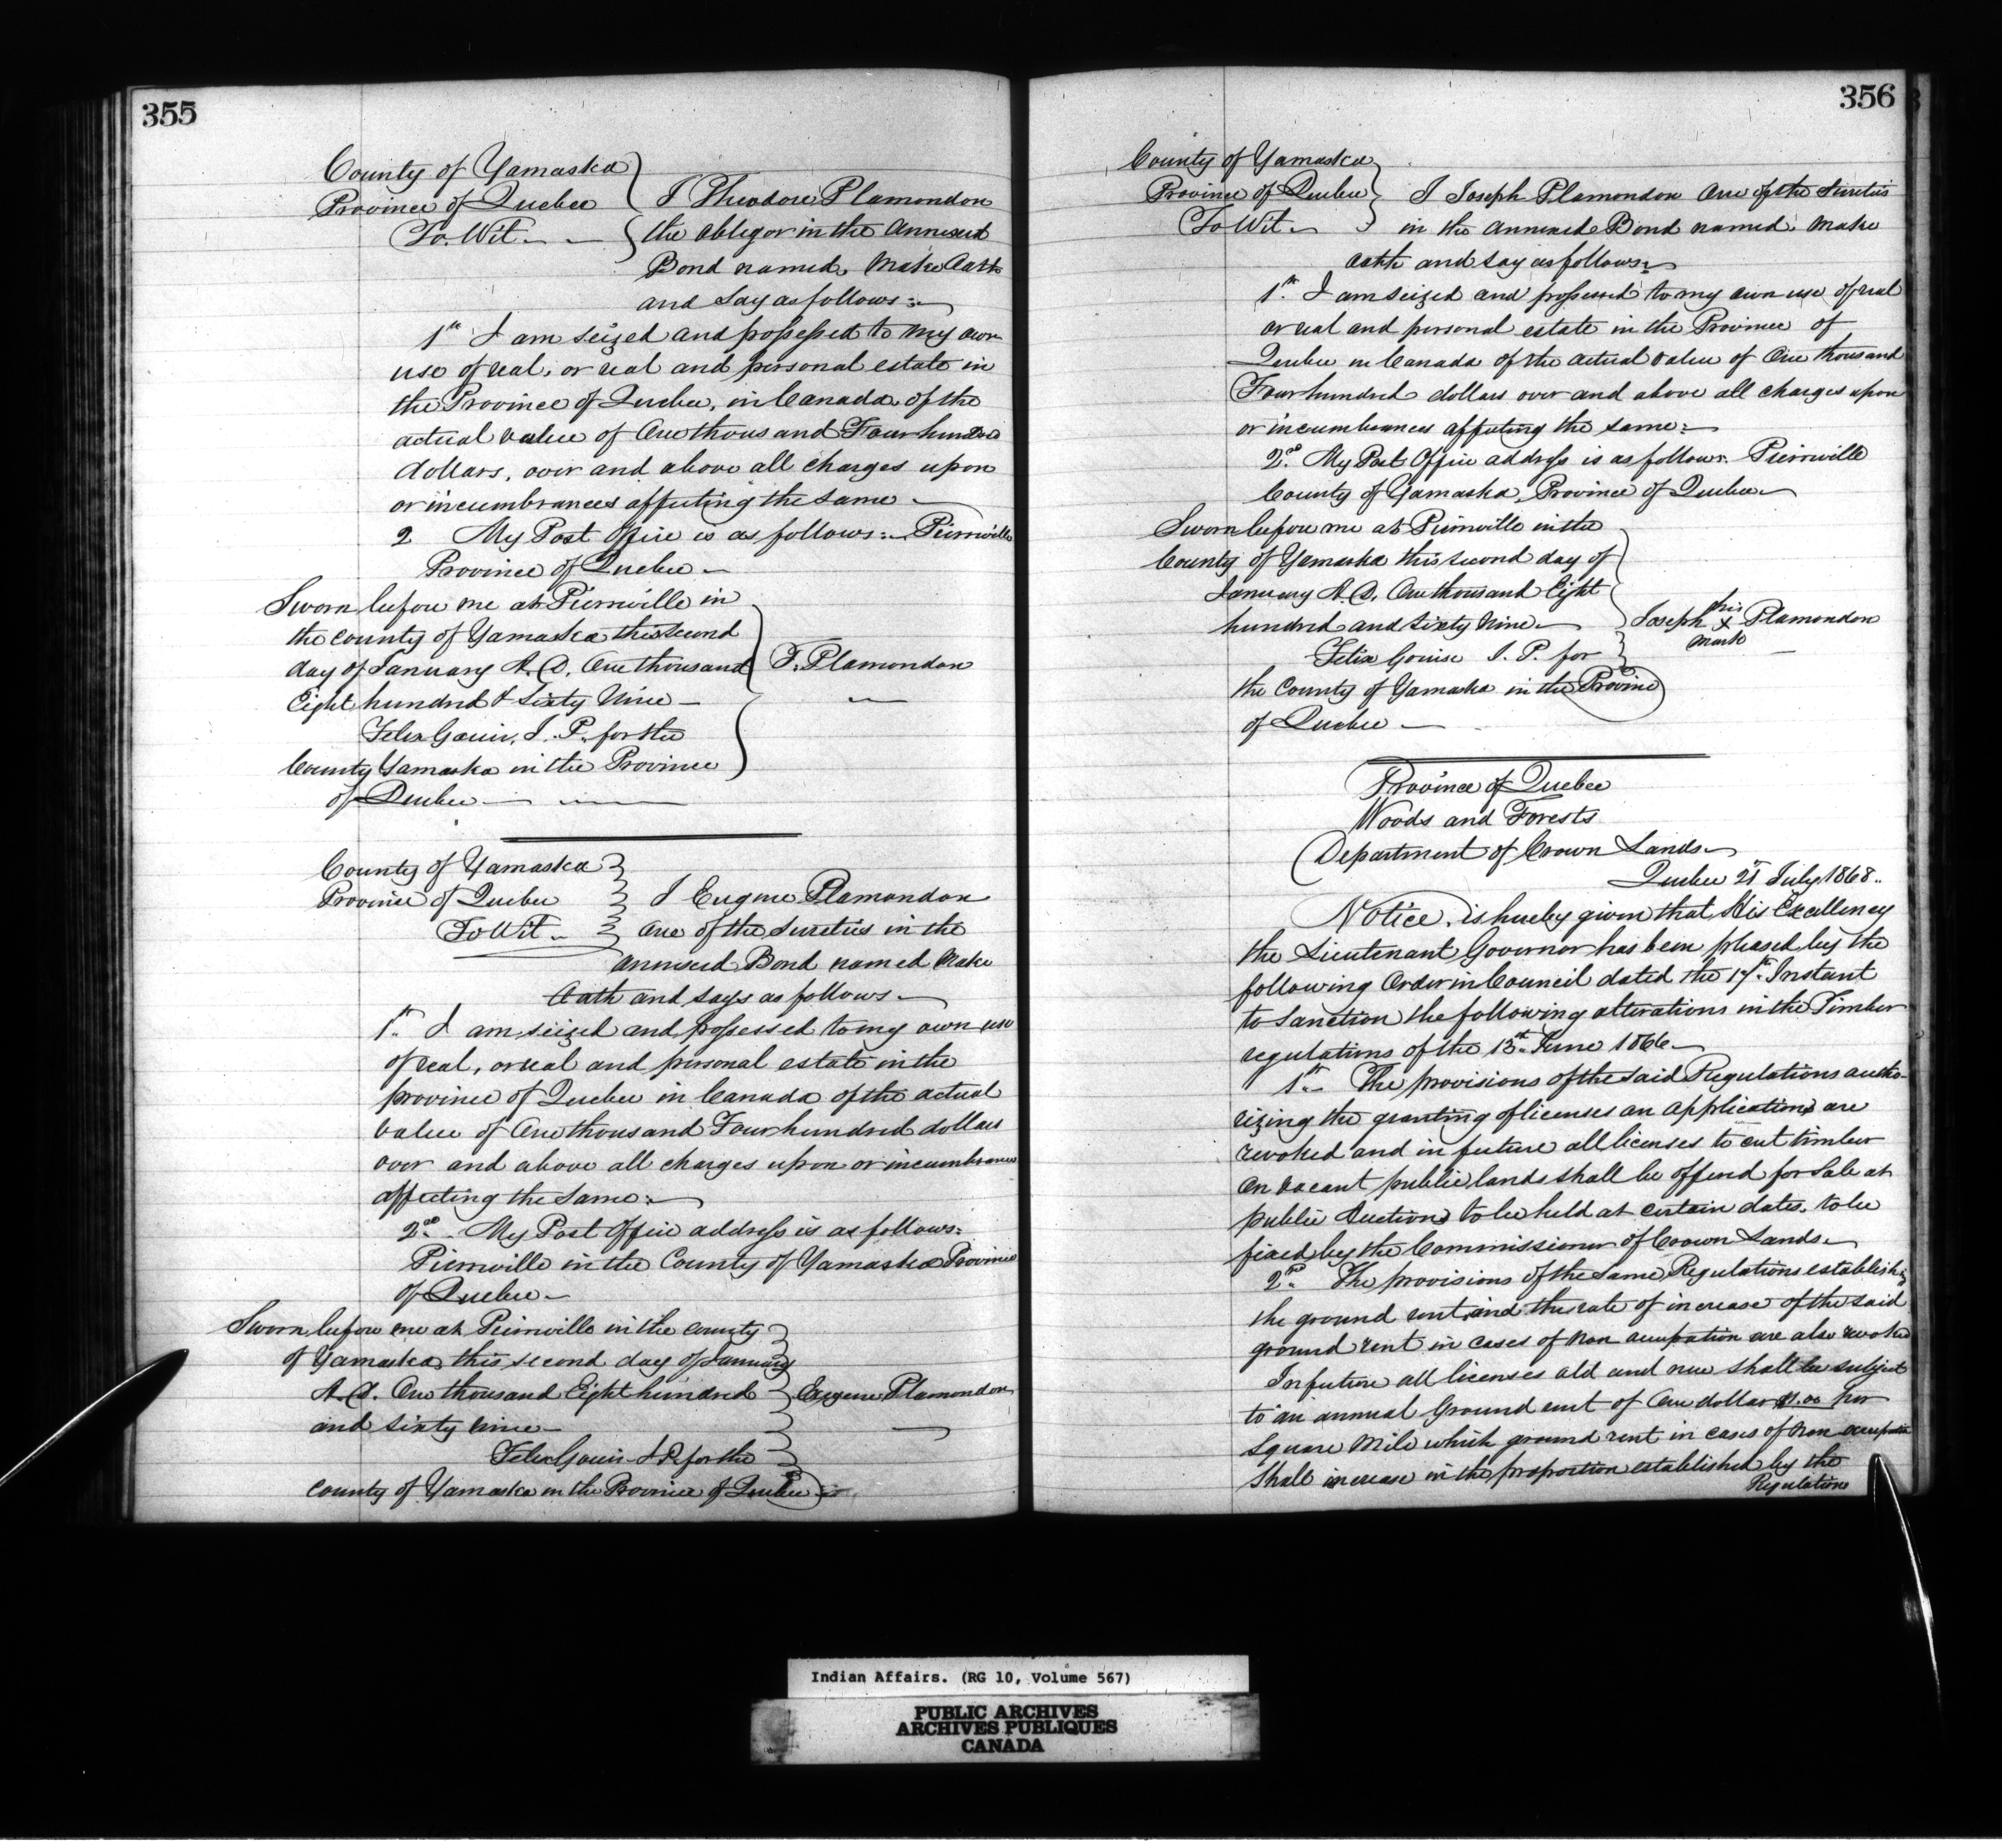 355
County of Yamaska
Province of Quebec
To Wit
I Theodore Plamondon
the obligor in the annexed
Bond named, Make Oath
and Say as follows:
1st I am seized and possessed to my own
use of real, or real and personal estate in
the Province of Quebec, in Canada, of the
actual value of One thousand Four hundred
dollars, over and above all charges upon
or incumbrances affecting the same
2 My Post Office is as follows: Pierreville
Province of Quebec
Sworn before me at Pierreville in
the county of Yamaska this second
day of January A.D. One thousand
Eight hundred & Sixty Nine
T. Plamondon
Felix Gouin, J.P. for the
County Yamaska in the Province
of Quebec
County of Yamaska
Province of Quebec
To Wit
I Eugene Plamondon
One of the Sureties in the
annexed Bond named Make
Oath and says as follows
1st I am seized and possessed to my own use
of real, or real and personal estate in the
province of Quebec in Canada of the actual
value of One thousand Four hundred dollars
over and above all charges upon or incumbrances
affecting the same:
2nd My Post Office address is as follows:
Pierreville in the County of Yamaska Province
of Quebec
Sworn before me at Pierreville in the county
of Yamaska, this second day of January
A.D. One thousand Eight hundred
and sixty nine
Eugene Plamondon
Felix Gouin J.P. for the
county of Yamaska in the Province of Quebec
356
County of Yamaska
Province of Quebec
To Wit
I Joseph Plamondon One of the Sureties
in the annexed Bond named, Make
oath and say as follows:
1st I am seized and possessed to my own use of real
or real and personal estate in the Province of
Quebec in Canada of the actual value of One thousand
Four hundred dollars over and above all charges upon
or incumbrances affecting the same:
2nd My Post Office address is as follows. Pierreville
County of Yamaska, Province of Quebec
Sworn before me at Pierreville in the
County of Yamaska this second day of
January A.D. One thousand Eight
hundred and sixty Nine
Joseph his X mark Plamondon
Felix Gouin J.P. for
the County of Yamaska in the Province
of Quebec
Province of Quebec
Woods and Forests
Department of Crown Lands
Quebec 21st July 1868
Notice, is hereby given that His Excellency
the Lieutenant Governor has been pleased by the
following Order in Council dated the 17th Instant
to Sanction the following alterations in the Timber
regulations of the 13th June 1866
1st The provisions of the said Regulations autho-
rizing the granting of licenses on applications are
revoked and in future all licenses to cut timber
on vacant public lands shall be offered for Sale at
public Auctions to be held at certain dates, to be
fixed by the Commissioner of Crown Lands
2nd The provisions of the Same Regulations establish'g
the ground rent and the rate of increase of the said
ground rent in cases of non occupation are also revoked
In future all licenses old and new shall be subject
to an annual Ground rent of One dollar $1.00 per
Square Mile which ground rent in cases of Non occupation
shall increase in the proportion established by the
Regulations
Indian Affairs. (RG 10, Volume 567)
PUBLIC ARCHIVES
ARCHIVES PUBLIQUES
CANADA